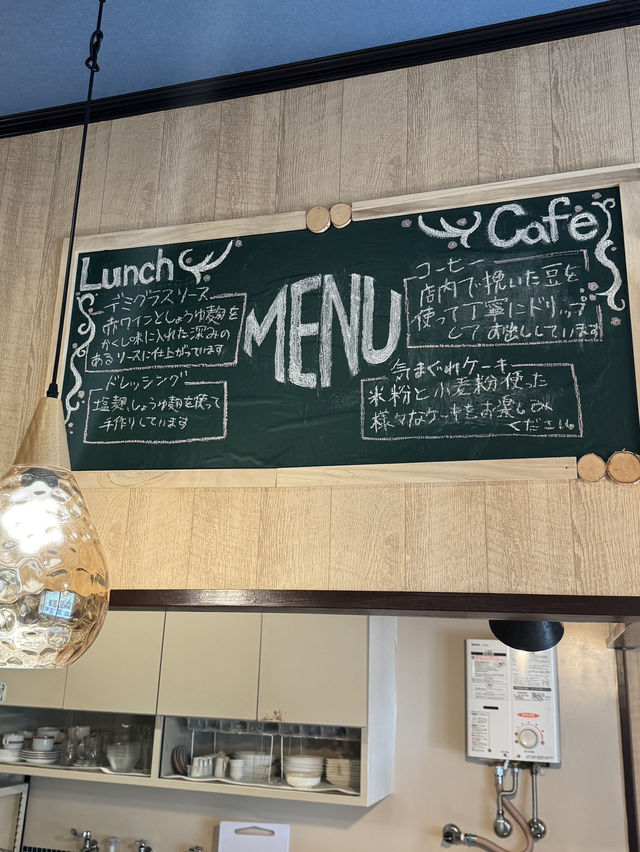 Lunch
デミグラスソース
赤ワインとしょうゆ麹を
かくし味に入れた深みの
あるソースに仕上がっています
ドレッシング
塩麹、しょうゆ麹を使って
手作りしています
MENU
Café
コーヒー
店内で挽いた豆を
使って丁寧にドリップ
して お出ししています
気まぐれケーキ
米粉と小麦粉使った
様々なケーキをお楽しみ
ください